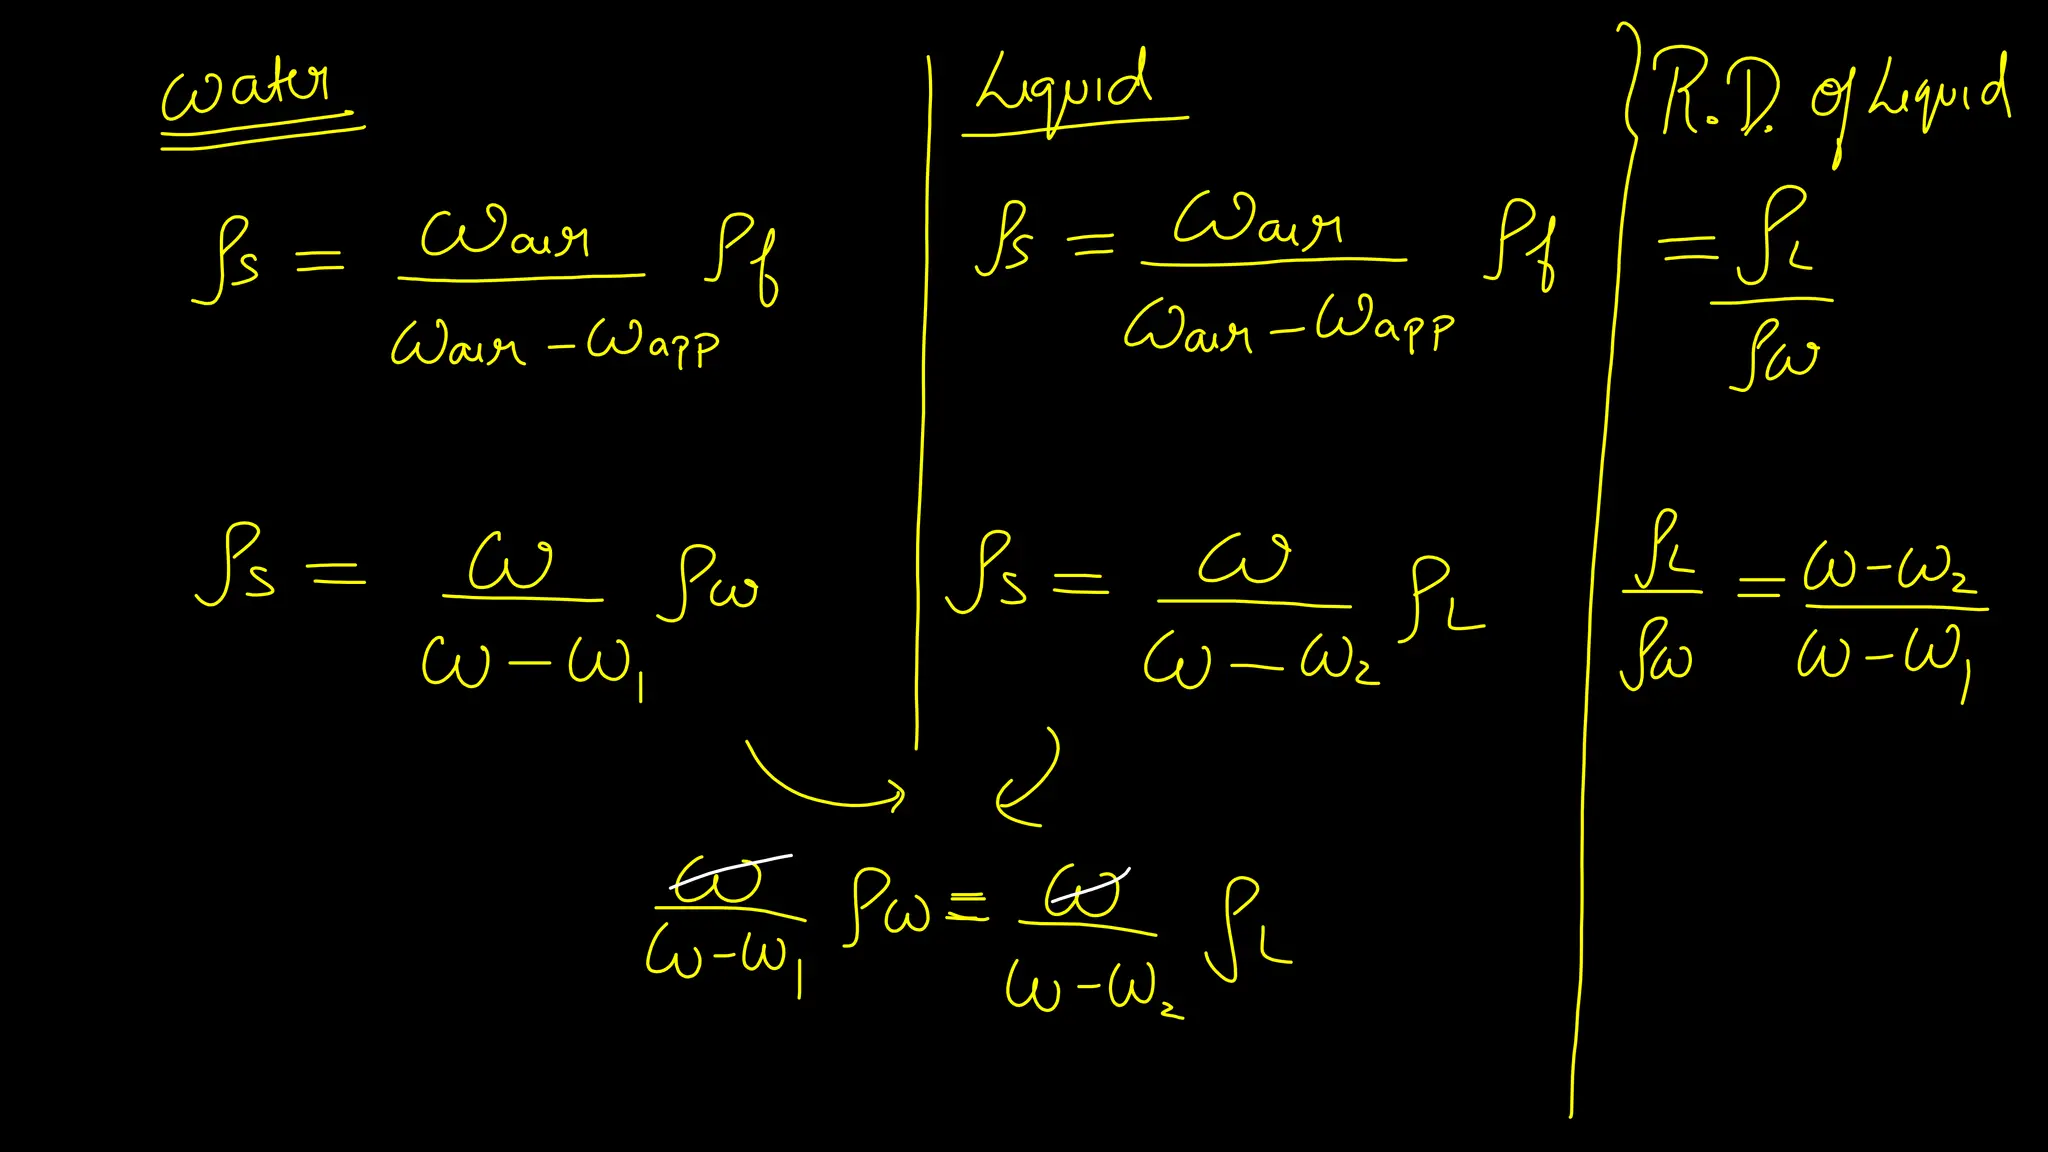 Water
ρs = Wair / (Wair – Wapp) ρf
ρs = W / (W – W1) ρw
Liquid
ρs = Wair / (Wair – Wapp) ρf
ρs = W / (W – W2) ρL
W / (W – W1) ρw = W / (W – W2) ρL
R.D. of Liquid
= ρL / ρw
ρL / ρw = (W – W2) / (W – W1)